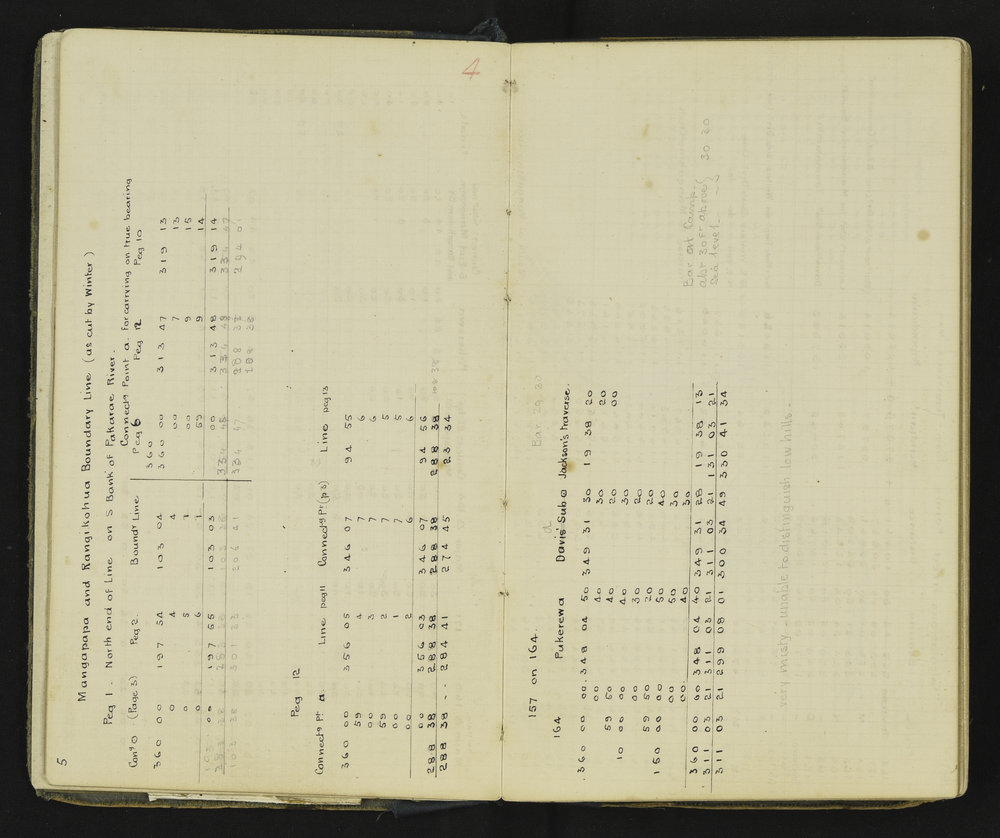 5
4
Mangapapa and Rangikohua Boundary Line (as cut by Winter)
Peg 1. North end of Line on S Bank of Pakarae River.
Connectg Point a. For carrying on true bearing
Cong (Page 3) Peg 2. Boundy Line Peg 6 Peg 12 Peg 10
360
360 00 197 54 103 04 360 00 313 47 319 13
0 4 4 00 7 13
0 5 00 9 15
0 6 1 59 9 14
00 197 55 103 03 00 313 48 319 14
Peg 12
Connectg Pt a Line peg 11 Connectg Pt (p 3) Line peg 13
360 00 356 05 346 07 94 55
59 4 7 6
00 3 7 6
59 2 7 5
00 1 7 5
00 2 6 6
00 356 03 346 07 94 56
288 38 288 38 288 38 288 38
288 38 -- 284 41 274 45 23 34
Bar 29 30
Bar at Camp
abt 30 Ft above
Sea level 30 20
157 on 164.
164 Pukerewa Davis' Sub Jackson's traverse.
360 00 00 348 04 50 349 31 30 19 38 20
00 40 30 20
59 50 40 20 00
10 00 00 40 30
00 30 20
59 50 20 20
150 00 00 50 40
00 50 30
00 40 30
360 00 00 348 04 40 349 31 28 19 38 13
311 03 21 311 03 21 311 03 21 131 03 21
311 03 21 299 08 01 300 34 49 330 41 34
very misty - unable to distinguish low hills -